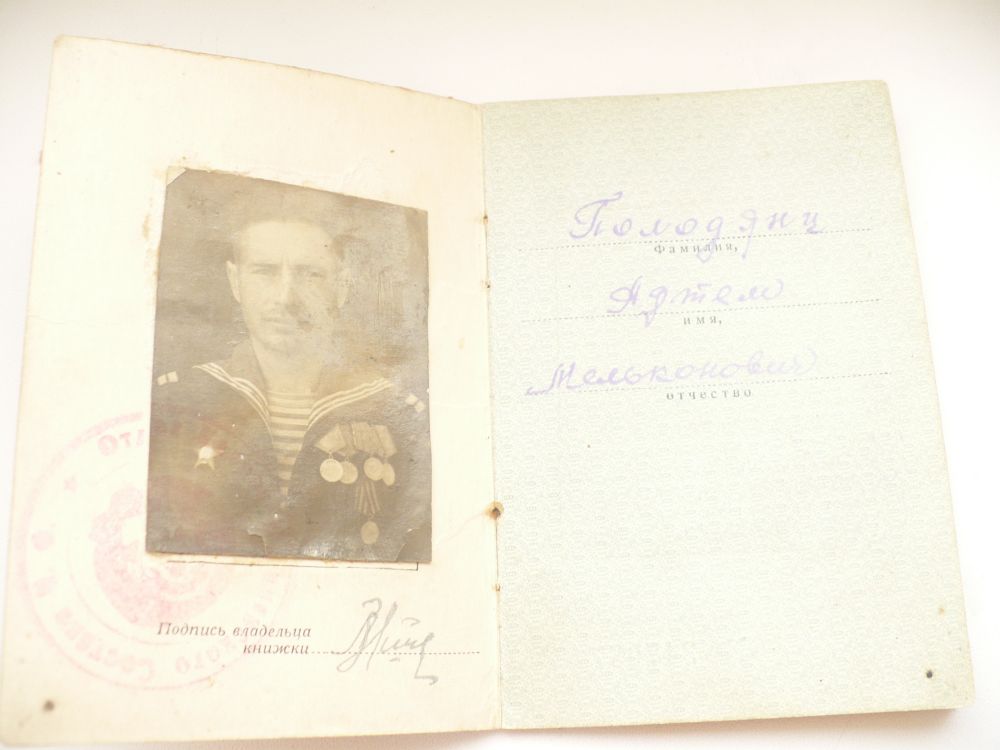 Подпись владельца
книжки
Полодянц
фамилия,
Артем
имя,
Мельконович
отчество